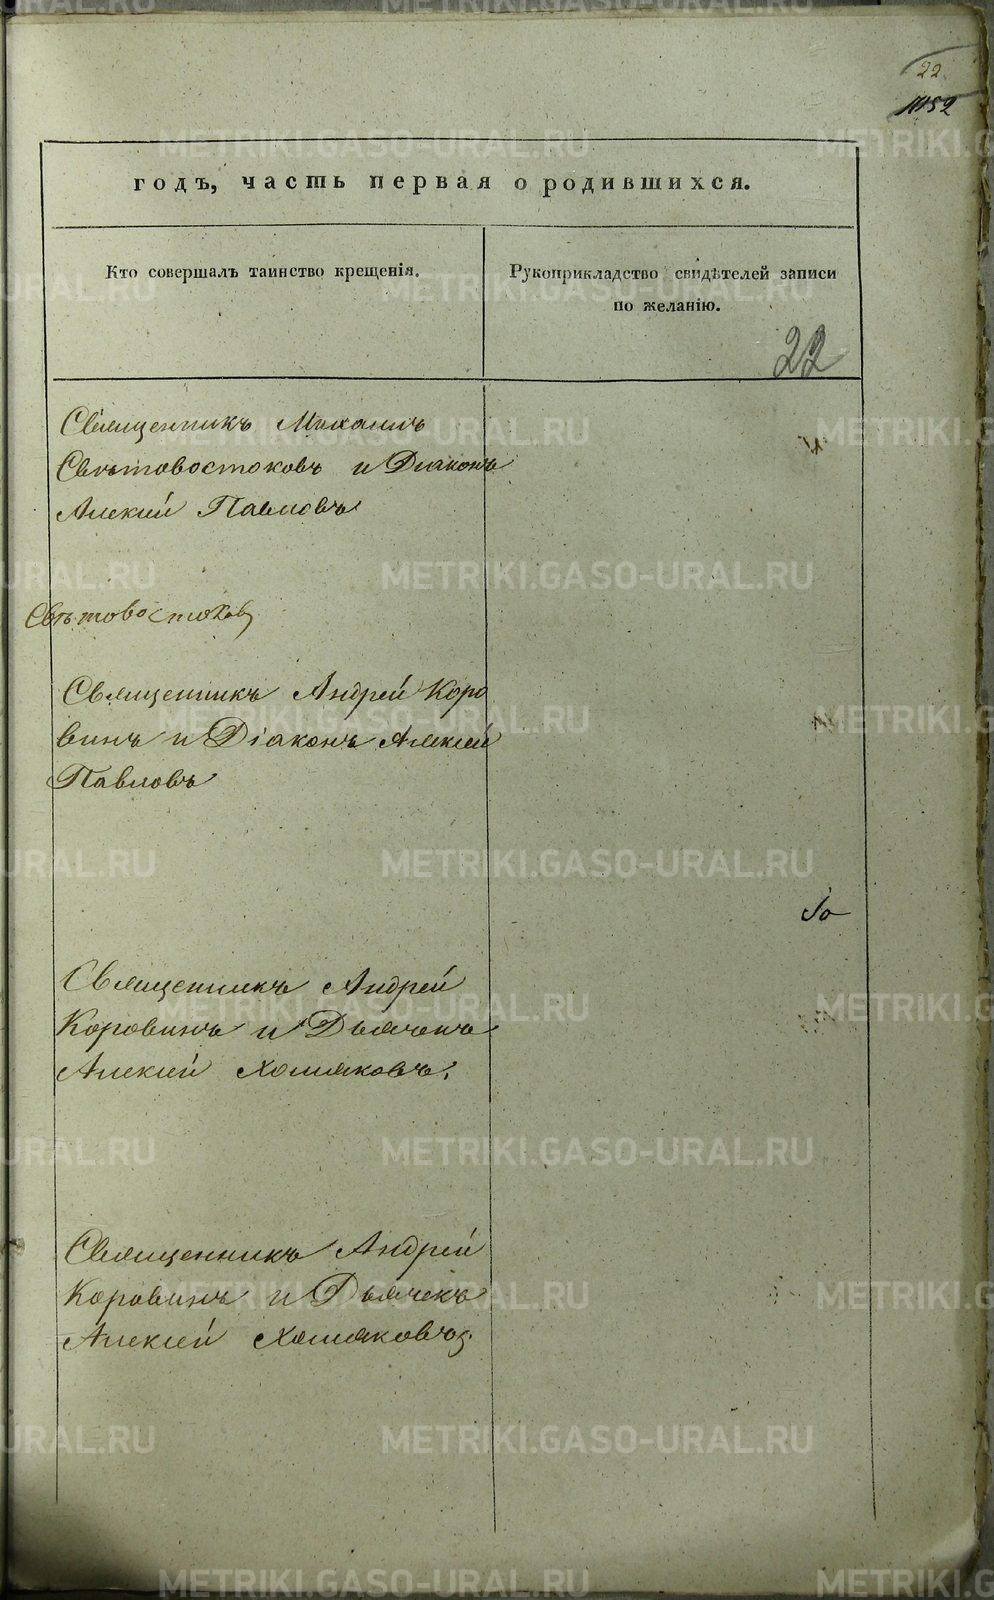 22
1152
годъ, часть первая о родившихся.
Кто совершалъ таинство крещенія.
Рукоприкладство свидѣтелей записи
по желанію.
22
Священникъ Михаилъ
Свѣтовостоковъ и Діаконъ
Алексѣй Павловъ
Свѣтовостоковъ
Священникъ Андрей Коро
винъ и Діаконъ Алексѣй
Павловъ
Священникъ Андрей
Коровинъ и Дьячекъ
Алексѣй Хомяковъ.
Священникъ Андрей
Коровинъ и Дьячекъ
Алексѣй Хомяковъ.
METRIKI.GASO-URAL.RU